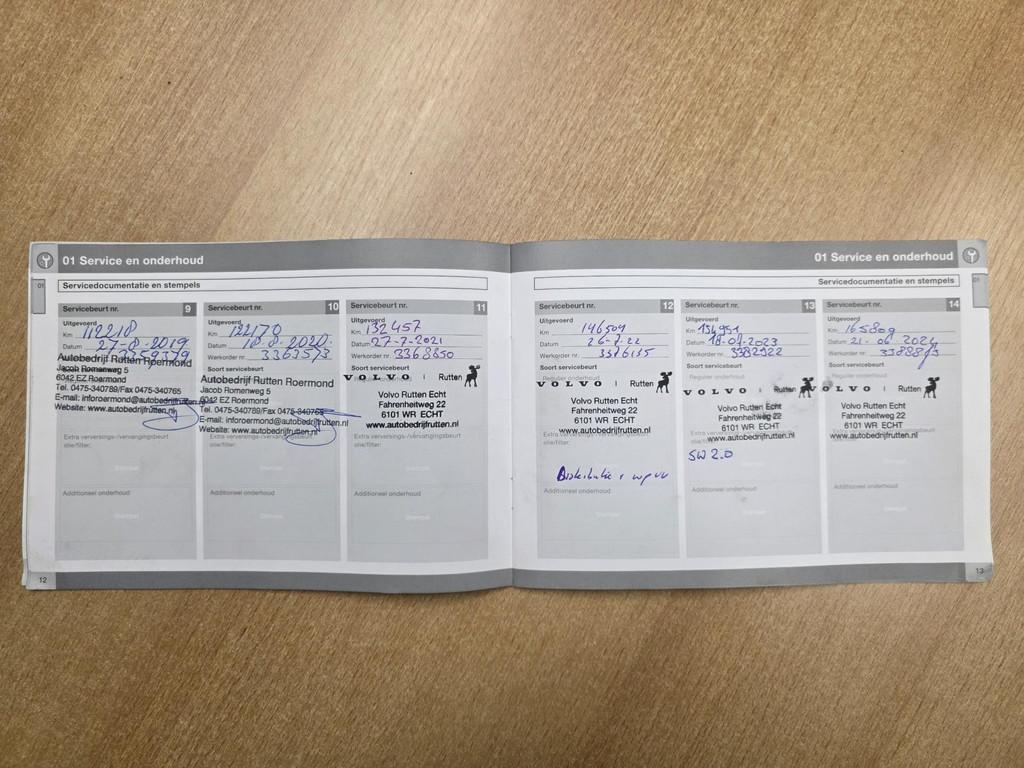 01 Service en onderhoud
01
Servicedocumentatie en stempels
Servicebeurt nr. 9
Uitgevoerd
Km 112218
Datum 27-8-2019
3359379
Autobedrijf Rutten Roermond
Jacob Romenweg 5
6042 EZ Roermond
Tel. 0475-340789/Fax 0475-340765
E-mail: inforoermond@autobedrijfrutten.nl
Website: www.autobedrijfrutten.nl
Extra verversings-/vervangingsbeurt
olie/filter:
Stempel
Additioneel onderhoud
Stempel
Servicebeurt nr. 10
Uitgevoerd
Km 122170
Datum 18-8-2020
Werkorder nr. 3363573
Soort servicebeurt
Autobedrijf Rutten Roermond
Jacob Romenweg 5
6042 EZ Roermond
Tel. 0475-340789/Fax 0475-340765
E-mail: inforoermond@autobedrijfrutten.nl
Website: www.autobedrijfrutten.nl
Extra verversings-/vervangingsbeurt
olie/filter:
Stempel
Additioneel onderhoud
Stempel
Servicebeurt nr. 11
Uitgevoerd
Km 132457
Datum 27-7-2021
Werkorder nr. 3368850
Soort servicebeurt
VOLVO | Rutten
Volvo Rutten Echt
Fahrenheitweg 22
6101 WR ECHT
www.autobedrijfrutten.nl
Extra verversings-/vervangingsbeurt
olie/filter:
Stempel
Additioneel onderhoud
Stempel
12
01 Service en onderhoud
01
Servicedocumentatie en stempels
Servicebeurt nr. 12
Uitgevoerd
Km 146504
Datum 26-7-22
Werkorder nr.
Soort servicebeurt
Regulier onderhoud
VOLVO | Rutten
Volvo Rutten Echt
Fahrenheitweg 22
6101 WR ECHT
www.autobedrijfrutten.nl
Extra verversings-/vervangingsbeurt
olie/filter:
Distributie
Additioneel onderhoud
Stempel
Servicebeurt nr. 13
Uitgevoerd
Km 154951
Datum 18-07-2023
Werkorder nr. 3382922
Soort servicebeurt
Regulier onderhoud
VOLVO | Rutten
Volvo Rutten Echt
Fahrenheitweg 22
6101 WR ECHT
www.autobedrijfrutten.nl
Extra verversings-/vervangingsbeurt
olie/filter:
SW 2.0
Additioneel onderhoud
Stempel
Servicebeurt nr. 14
Uitgevoerd
Km 165809
Datum 21-06-2024
Werkorder nr.
Soort servicebeurt
Regulier onderhoud
VOLVO | Rutten
Volvo Rutten Echt
Fahrenheitweg 22
6101 WR ECHT
www.autobedrijfrutten.nl
Extra verversings-/vervangingsbeurt
olie/filter:
Stempel
Additioneel onderhoud
Stempel
13